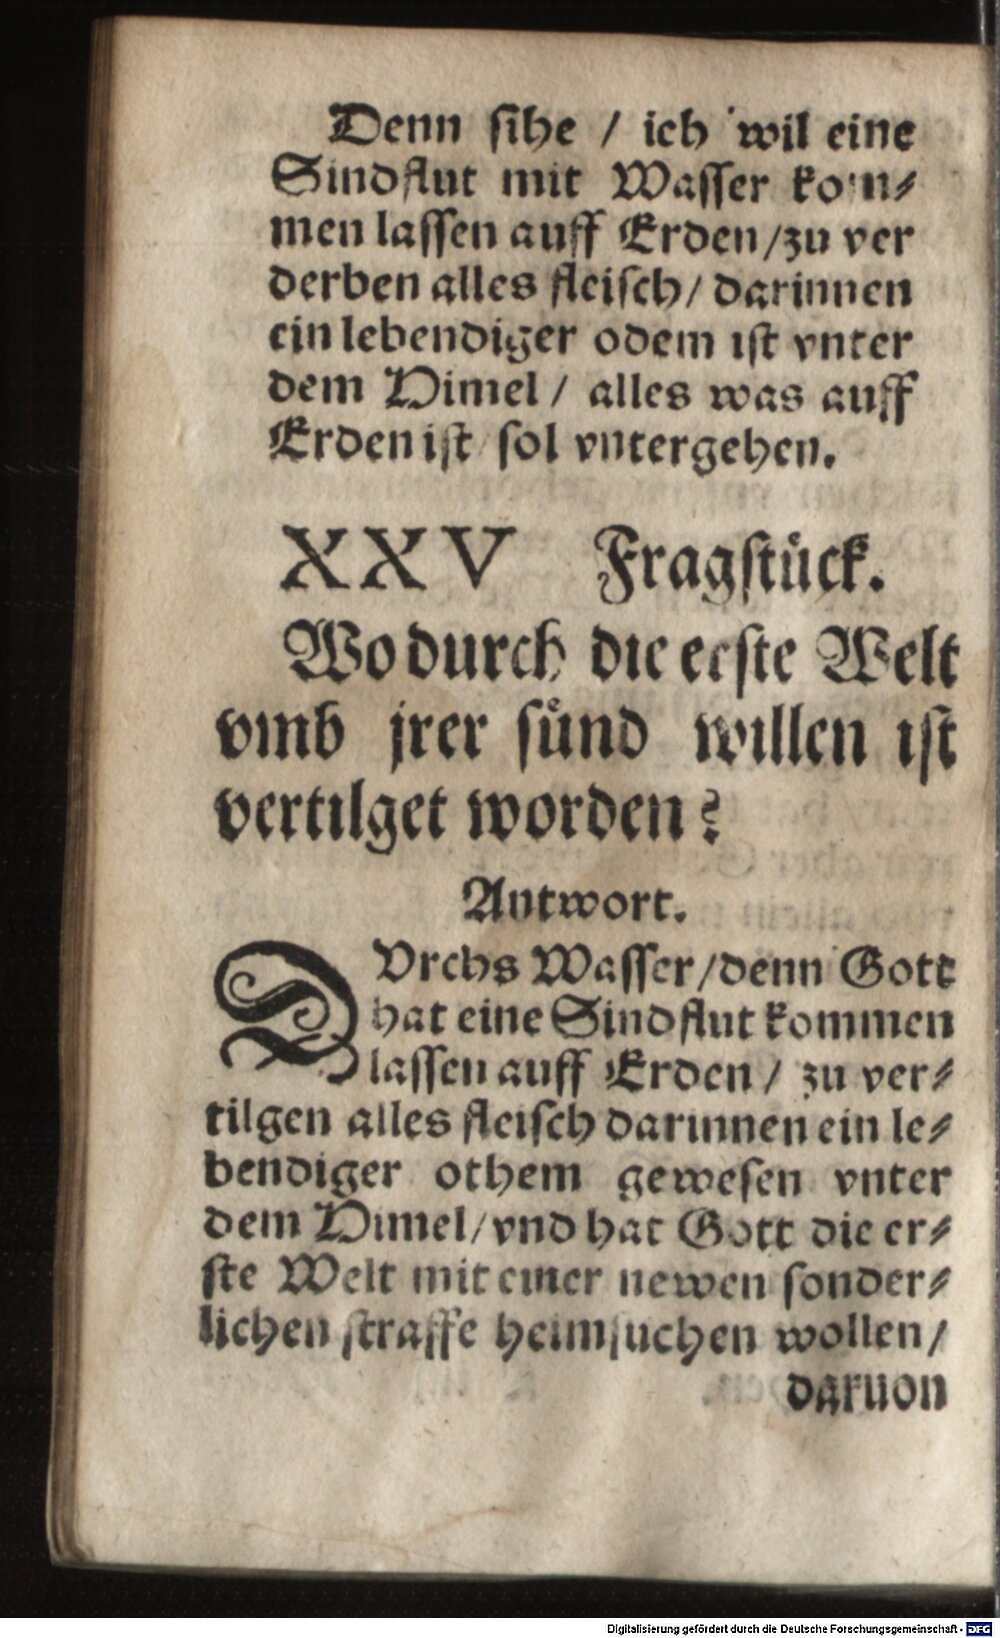 Denn sihe / ich wil eine
Sindflut mit Wasser kom⸗
men lassen auff Erden / zu ver
derben alles fleisch / darinnen
ein lebendiger odem ist vnter
dem Himel / alles was auff
Erden ist / sol vntergehen.
XXV Fragstuͤck.
Wodurch die erste Welt
vmb jrer suͤnd willen ist
vertilget worden?
Antwort.
DVrchs Wasser / denn Gott
hat eine Sindflut kommen
lassen auff Erden / zu ver⸗
tilgen alles fleisch darinnen ein le⸗
bendiger othem gewesen vnter
dem Himel / vnd hat Gott die er⸗
ste Welt mit einer newen sonder⸗
lichen straffe heimsuchen wollen /
daruon
Digitalisierung gefördert durch die Deutsche Forschungsgemeinschaft - DFG